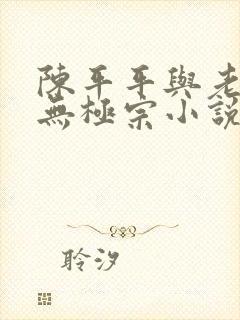 陳平平與老
無極宗小說
聆汐